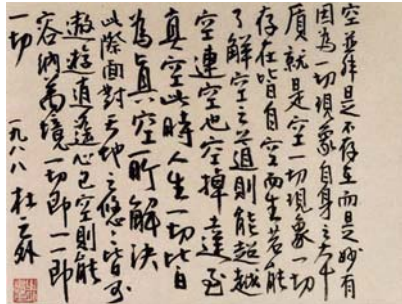 空並非是不存在而是妙有
因為一切現象自身之本
質就是空一切現象一切
存在皆自空而生若能
了解空之道則能超越
空連空也空掉達至
真空此時人生一切皆自
為真空所解決
此際面對天地之悠悠皆可
遨遊逍遙心已空則能
容納萬境一切即一一即
一切
一九八八 杜云外